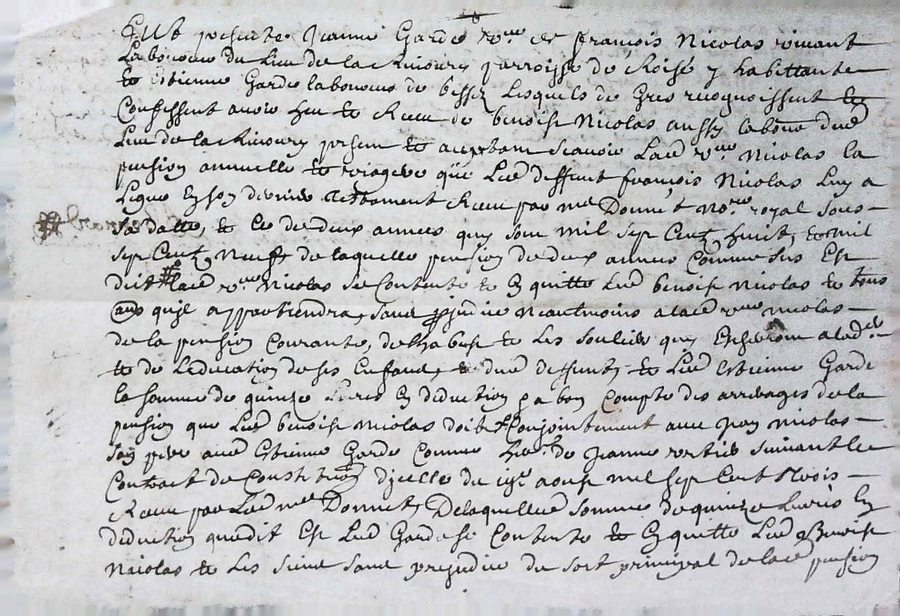 fust presente Jeanne Garde vve de François Nicolas vivant
Laboureur du Lieu de la parroisse de y habittante
et Estienne Garde laboureur de bessez Lesquels de Gres recognoissent et
Confessent avoir heu et Receu de benoist Nicolas aussy laboureur dud
Lieu de la present et acceptant scavoir Lade vve Nicolas la
pension annuelle et viagere que Led deffunt françois Nicolas Luy a
Legue En son dernier testament Receu par me Donnet nore royal sous
sa datte, et ce de deux annees quy sont mil sept Cent huit, et mil
sept Cent Neuf, de laquelle pension de deux annees Comme sus Est
dit lade vve Nicolas se Contente et En quitte Led benoist Nicolas et tous
aux qu'jl appartiendra, sans prejudice neantmoins a lade vve nicolas
de la pension Courante, de et les souliers quy a lade
et de Leducation de ses Enfans, et dud deffunt, et Led Estienne Garde
la somme de quinze Livres En deduction et a bon Compte des arrerages de la
pension que Led benoist Nicolas doibt Conjointement avec Jean nicolas
son pere aud Estienne Garde Comme her. de Jeanne suivant le
Contract de Constitution djcelle du aoust mil sept Cent Trois
Receu par Led me Donnet, De laquelle somme de quinze Livres En
deduction que dit Est Led Garde se Contente et En quitte Led Benoist
Nicolas et Les siens sans prejudice du sort principal de lade pension